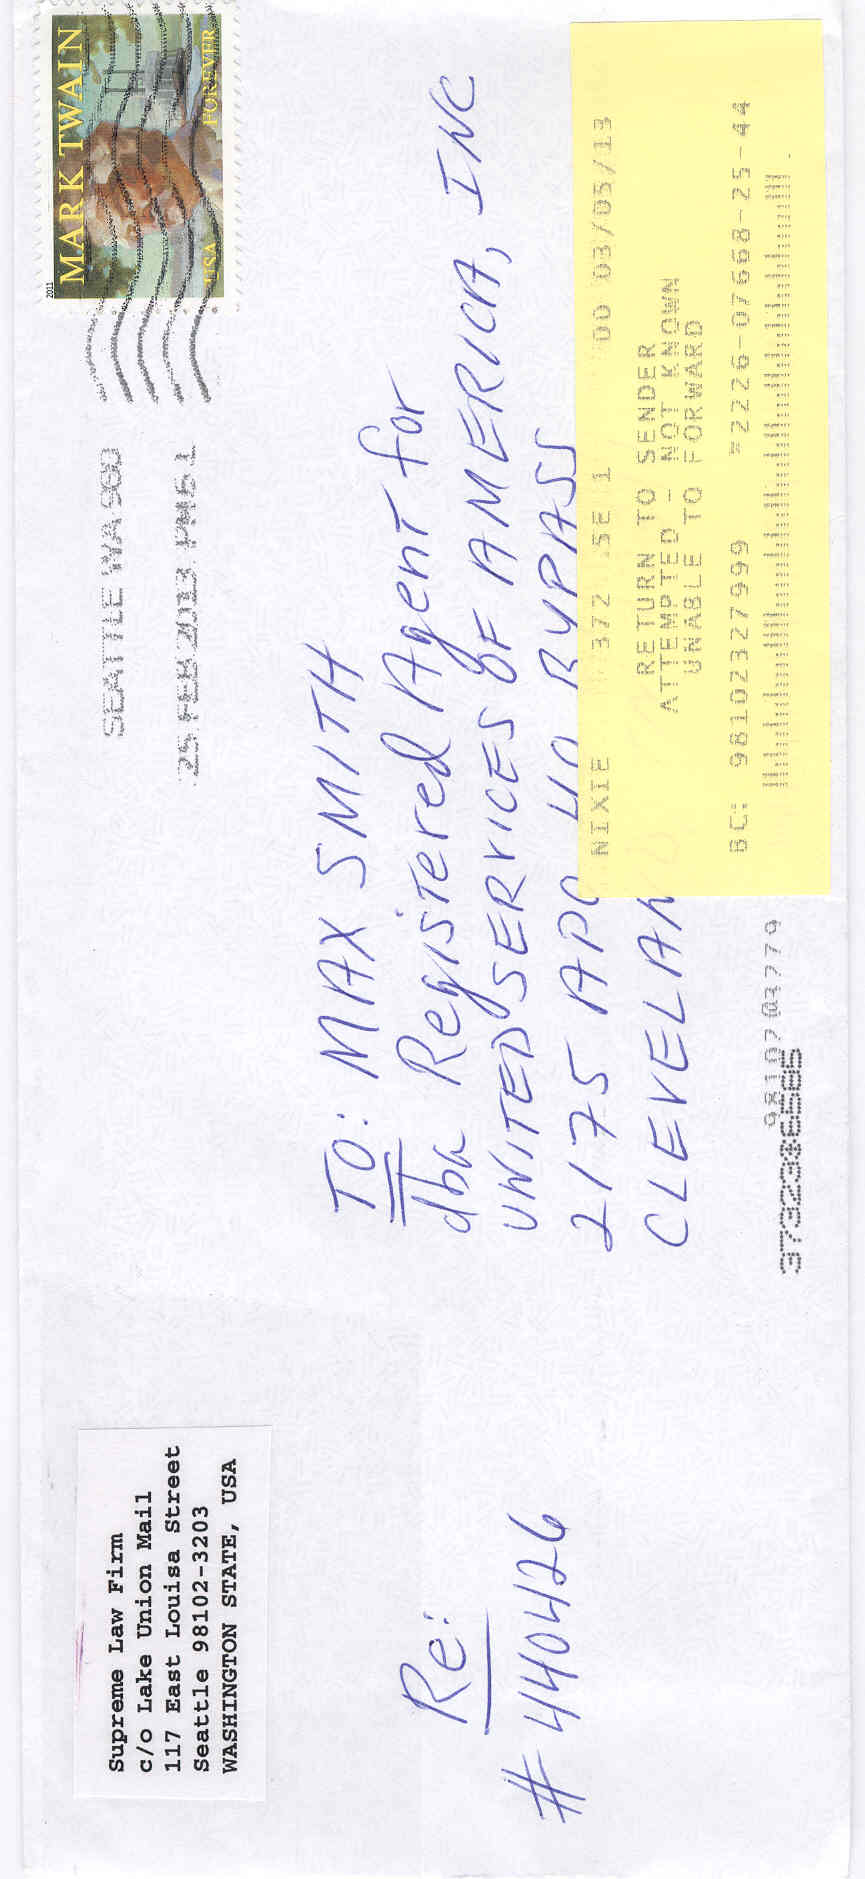 Supreme Law Firm
c/o Lake Union Mail
117 East Louisa Street
Seattle 98102-3203
WASHINGTON STATE, USA
SEATTLE WA 980
25 FEB 2013 PM 6 L
2011
MARK TWAIN
USA FOREVER
TO: MAX SMITH
dba Registered Agent for
UNITED SERVICES OF AMERICA, INC
2175 APD 40 BYPASS
CLEVELAND
Re:
# 440426
NIXIE 372 SE 1 00 03/05/13
RETURN TO SENDER
ATTEMPTED - NOT KNOWN
UNABLE TO FORWARD
BC: 98102327999 *2226-07668-25-44
98107@3779